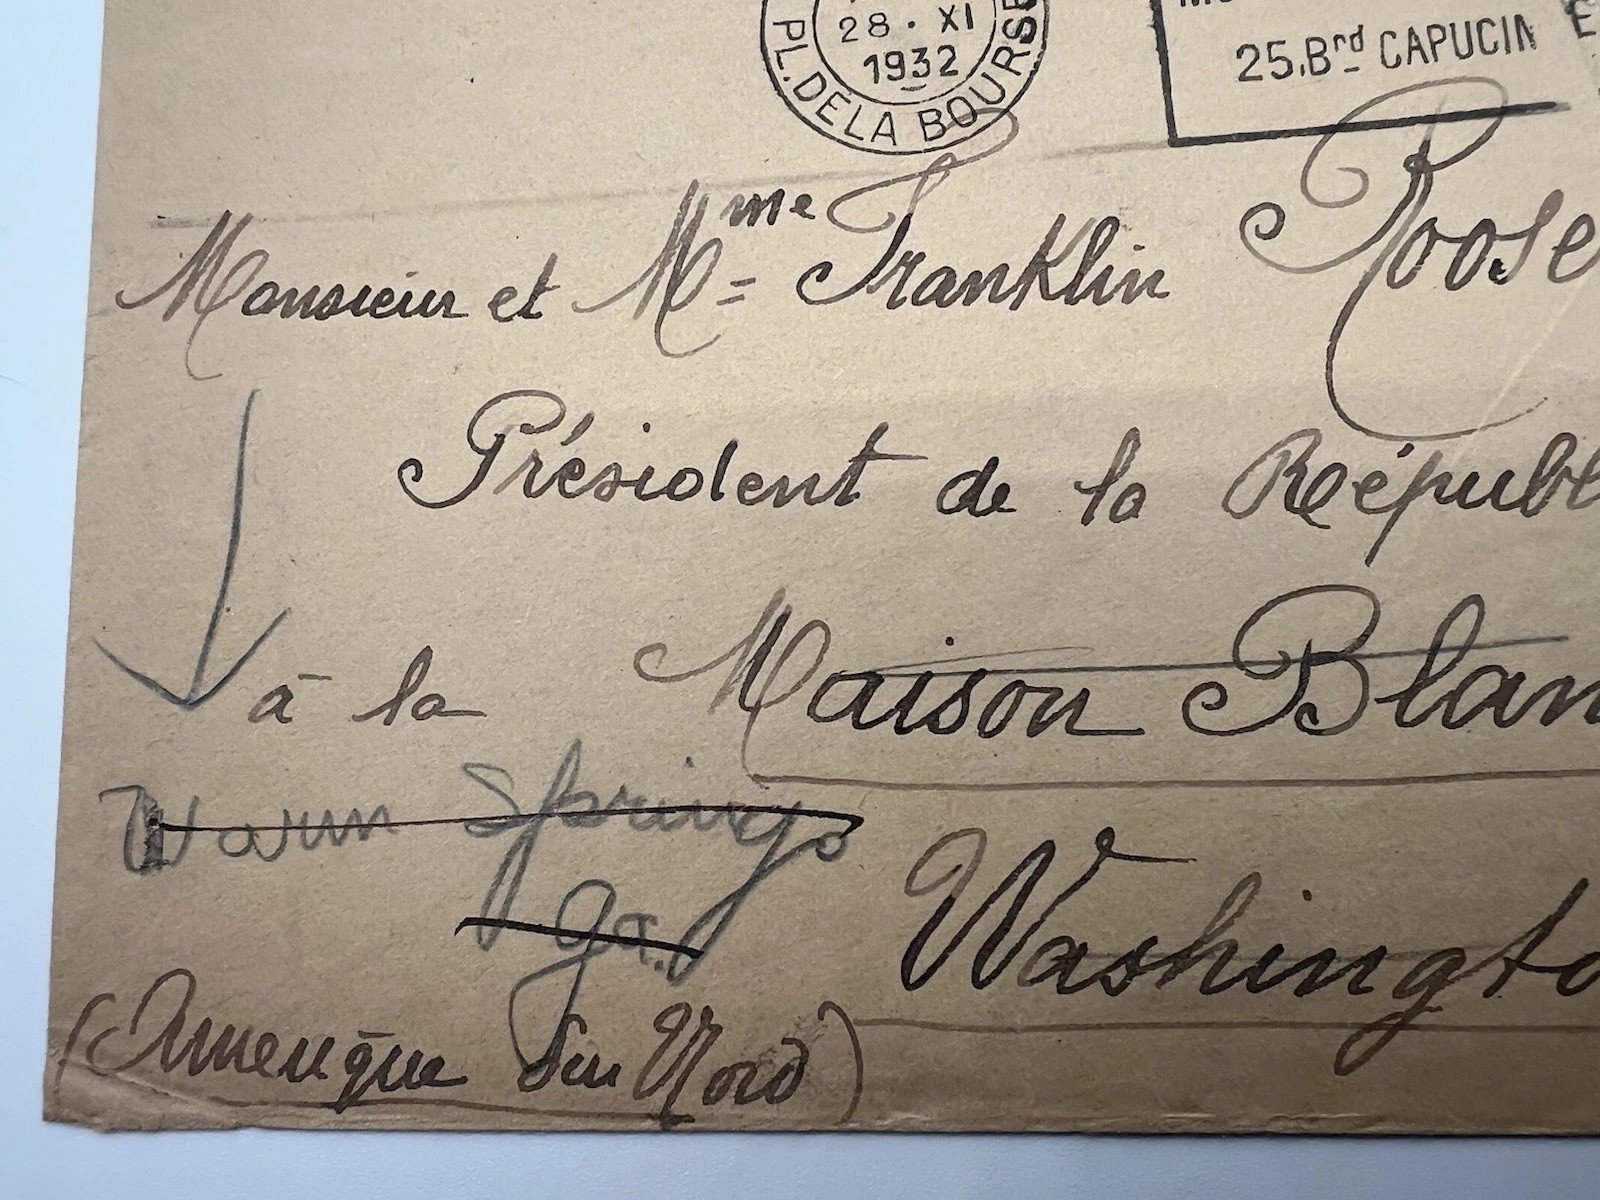 28 · XI
1932
PL. DE LA BOURSE
25. Brd CAPUCIN
Monsieur et Mme Franklin Roose
Président de la Républ
à la Maison Blan
Warm Springs
ga.
Washingto
(Amérique du Nord)